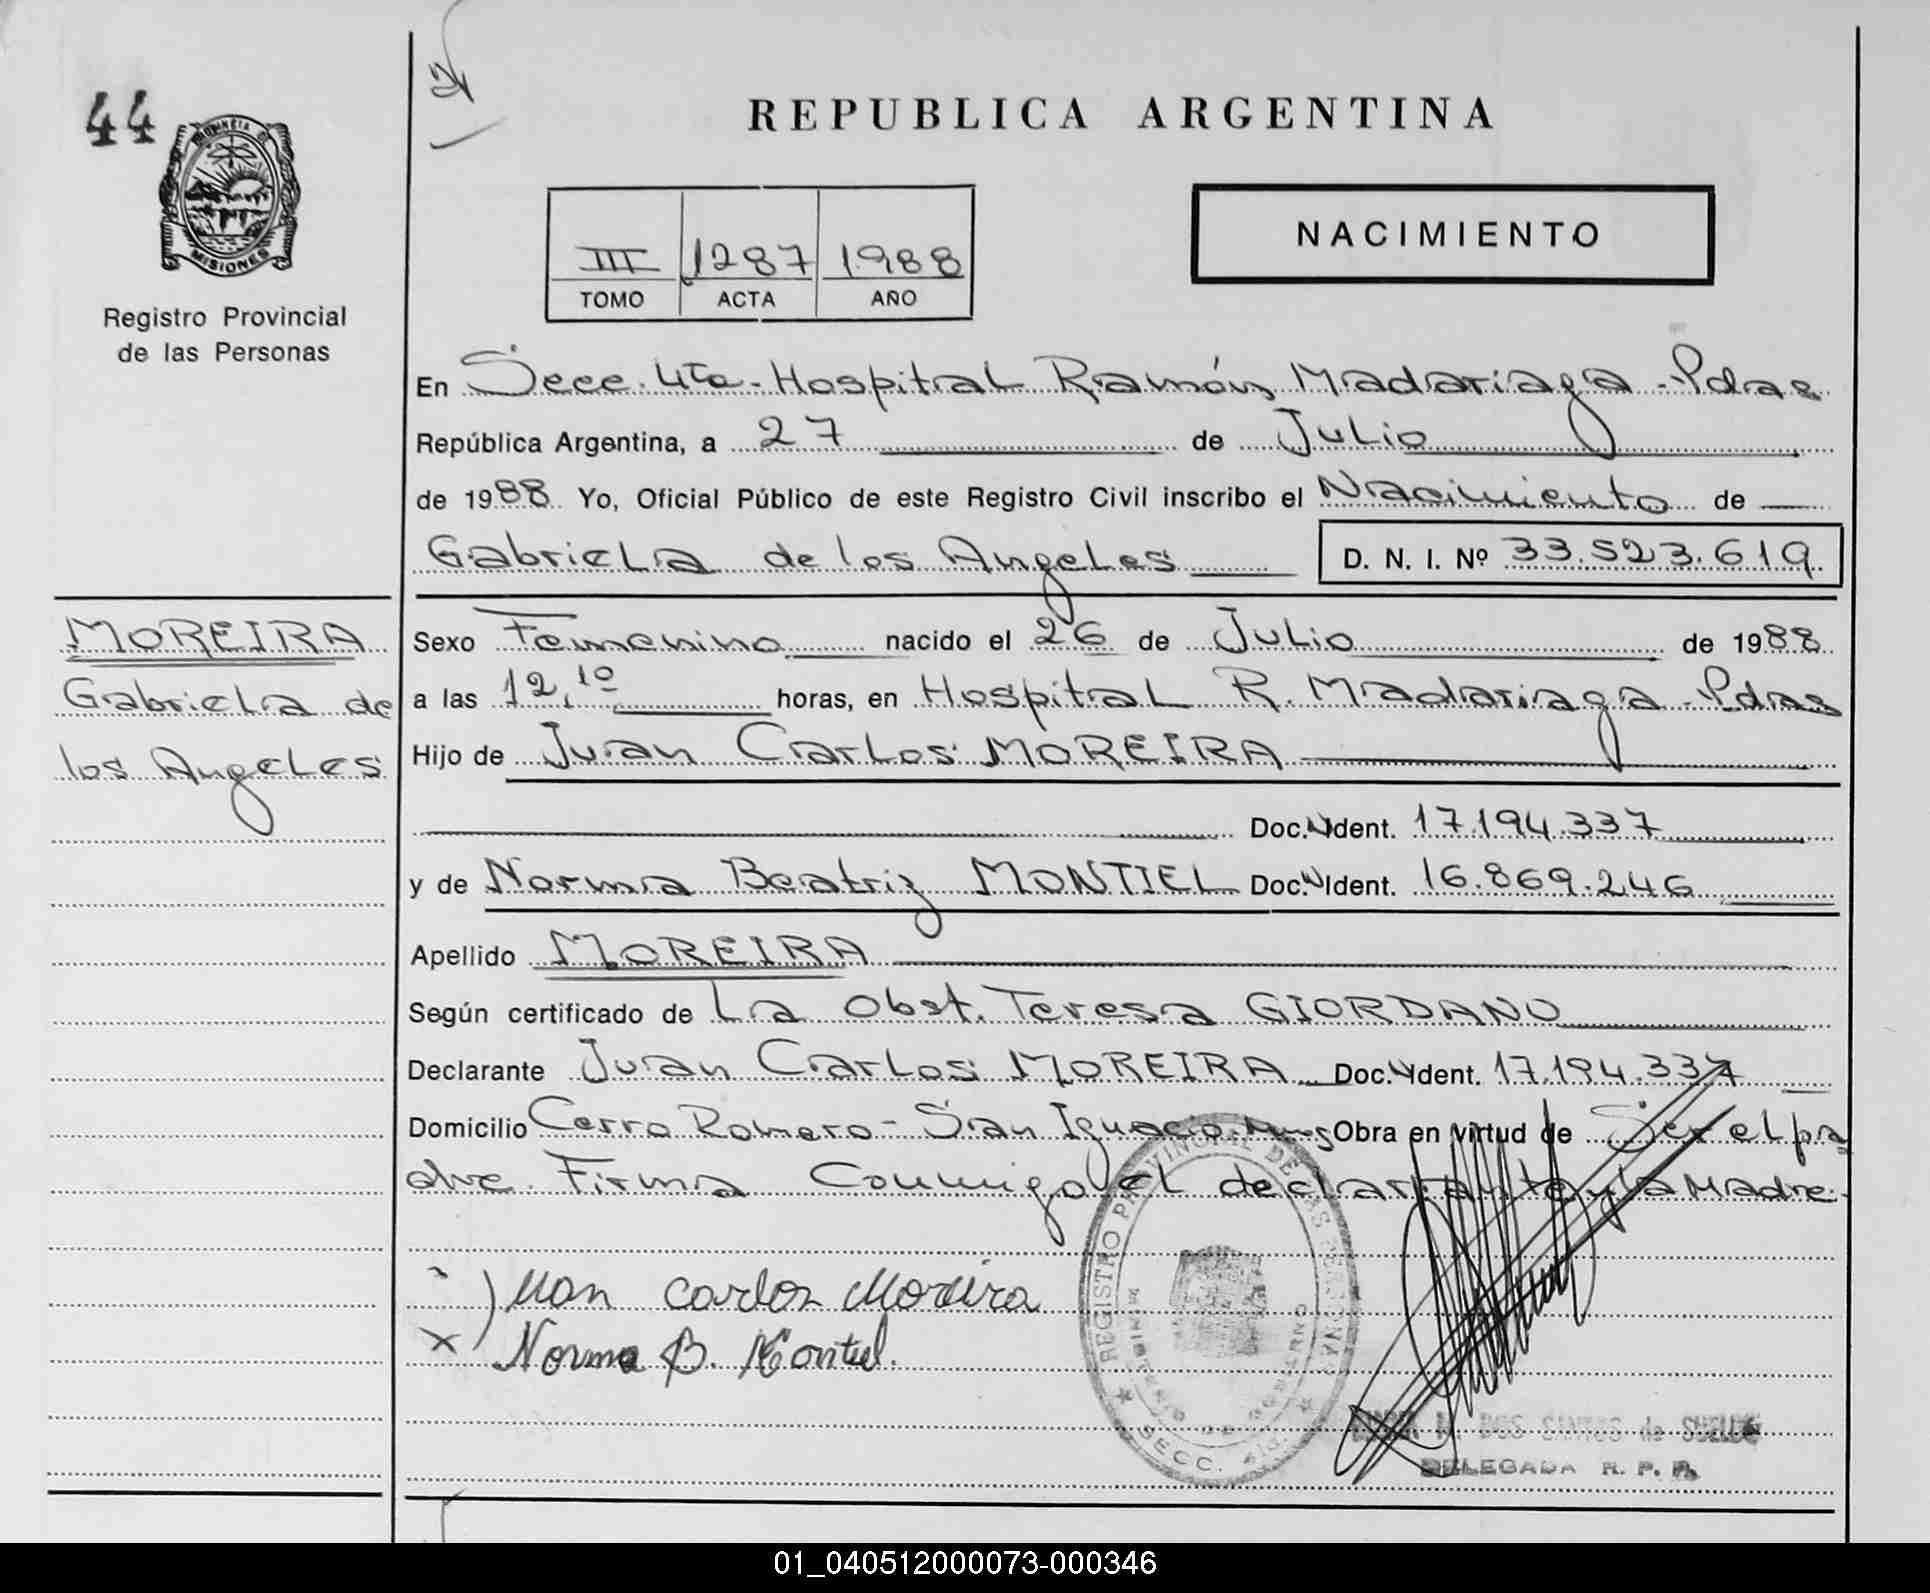 44
PROVINCIA DE
MISIONES
Registro Provincial
de las Personas
REPUBLICA ARGENTINA
NACIMIENTO
III 1287 1988
TOMO ACTA AÑO
En Secc. 4ta. Hospital Ramón Madariaga - Pdas
República Argentina, a 27 de Julio
de 1988 Yo, Oficial Público de este Registro Civil inscribo el Nacimiento de
Gabriela de los Angeles D. N. I. Nº 33.523.619
MOREIRA
Gabriela de
los Angeles
Sexo Femenino nacido el 26 de Julio de 1988
a las 12,10 horas, en Hospital R. Madariaga - Pdas
Hijo de Juan Carlos MOREIRA
Doc. Ident. 17.194.337
y de Norma Beatriz MONTIEL Doc. Ident. 16.869.246
Apellido MOREIRA
Según certificado de La Obst. Teresa GIORDANO
Declarante Juan Carlos MOREIRA Doc. Ident. 17.194.337
Domicilio Cerro Romero - San Ignacio Mnes Obra en virtud de Ser el pa
dre. Firma Conmigo el declarante y la Madre.
Juan Carlos Moreira
x Norma B. Montiel.
REGISTRO PROVINCIAL DE LAS PERSONAS
SECC. 4ta.
M. DOS SANTOS de SUELDO
DELEGADA R. P. P.
01_040512000073-000346